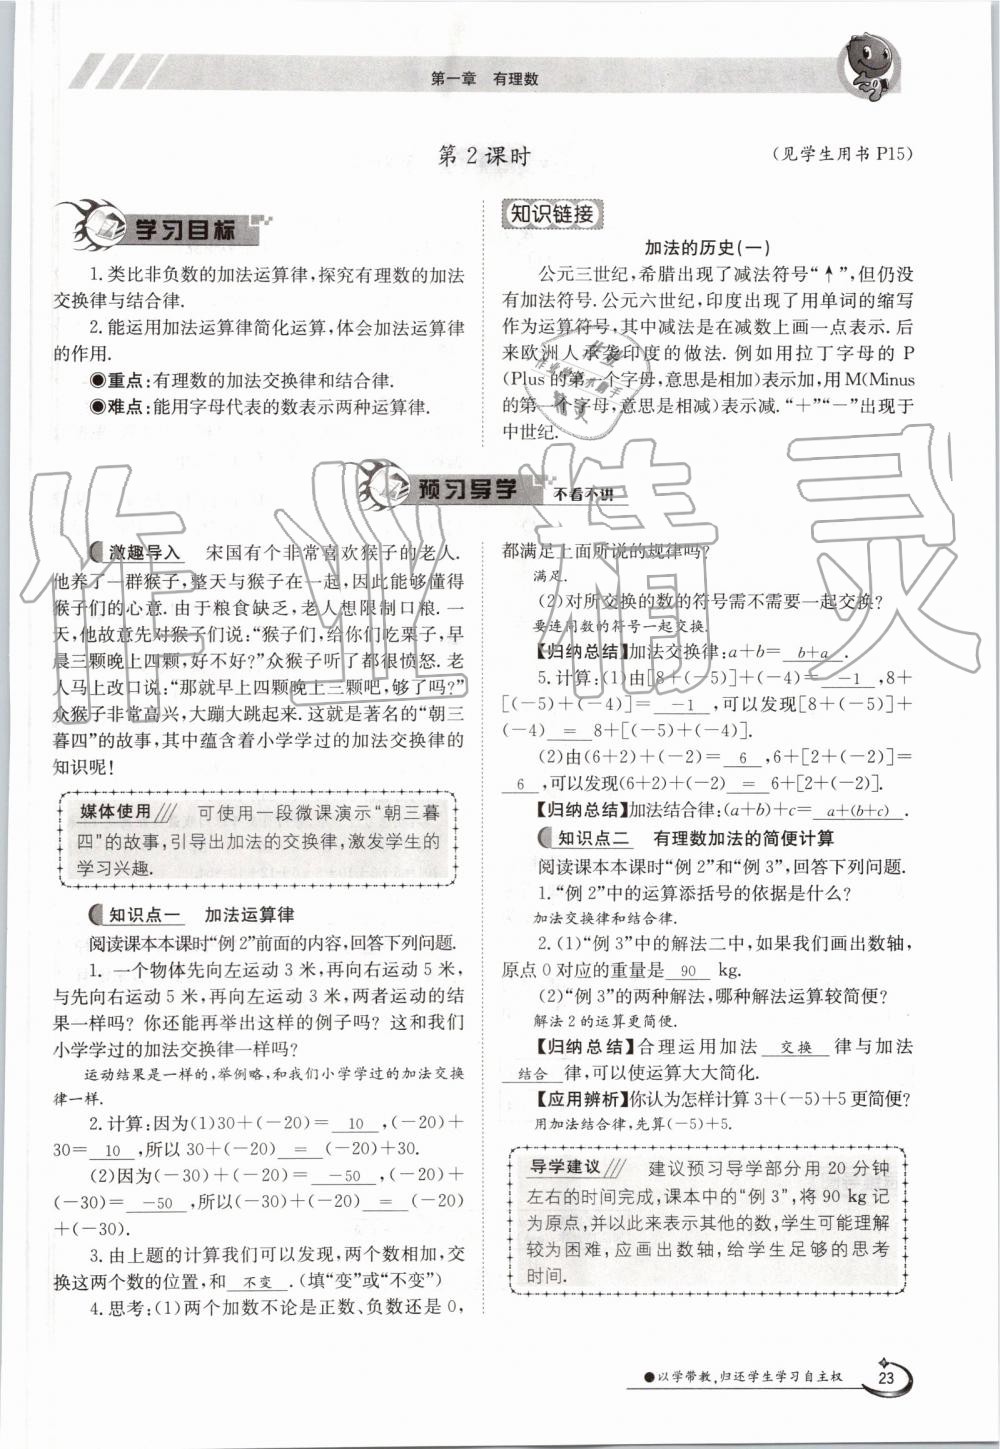 第一章 有理数
第2课时
(见学生用书 P15)
学习目标
1.类比非负数的加法运算律,探究有理数的加法
交换律与结合律.
2.能运用加法运算律简化运算,体会加法运算律
的作用.
●重点:有理数的加法交换律和结合律.
●难点:能用字母代表的数表示两种运算律.
知识链接
加法的历史(一)
公元三世纪,希腊出现了减法符号“↑”,但仍没
有加法符号.公元六世纪,印度出现了用单词的缩写
作为运算符号,其中减法是在减数上画一点表示.后
来欧洲人承袭印度的做法.例如用拉丁字母的 P
(Plus 的第一个字母,意思是相加)表示加,用 M(Minus
的第一个字母,意思是相减)表示减.“+”“-”出现于
中世纪.
预习导学 不看不讲
激趣导入 宋国有个非常喜欢猴子的老人.
他养了一群猴子,整天与猴子在一起,因此能够懂得
猴子们的心意.由于粮食缺乏,老人想限制口粮.一
天,他故意先对猴子们说:“猴子们,你们吃栗子,早
晨三颗晚上四颗,好不好?”众猴子听了都很愤怒.老
人马上改口说:“那就早上四颗晚上三颗吧,够了吗?”
众猴子非常高兴,大蹦大跳起来.这就是著名的“朝三
暮四”的故事,其中蕴含着小学学过的加法交换律的
知识呢!
媒体使用 可使用一段微课演示“朝三暮
四”的故事,引导出加法的交换律,激发学生的
学习兴趣.
知识点一 加法运算律
阅读课本本课时“例 2”前面的内容,回答下列问题.
1. 一个物体先向左运动 3 米,再向右运动 5 米,
与先向右运动 5 米,再向左运动 3 米,两者运动的结
果一样吗? 你还能再举出这样的例子吗? 这和我们
小学学过的加法交换律一样吗?
运动结果是一样的,举例略,和我们小学学过的加法交换
律一样.
2.计算:因为(1)30+(-20)= 10 ,(-20)+
30= 10 ,所以 30+(-20) = (-20)+30.
(2)因为(-30)+(-20)= -50 ,(-20)+
(-30)= -50 ,所以(-30)+(-20) = (-20)
+(-30).
3.由上题的计算我们可以发现,两个数相加,交
换这两个数的位置,和 不变 .(填“变”或“不变”)
4.思考:(1)两个加数不论是正数、负数还是 0,
都满足上面所说的规律吗?
满足.
(2)对所交换的数的符号需不需要一起交换?
要连同数的符号一起交换.
【归纳总结】加法交换律:a+b= b+a .
5.计算:(1)由[8+(-5)]+(-4)= -1 ,8+
[(-5)+(-4)]= -1 ,可以发现[8+(-5)]+
(-4) = 8+[(-5)+(-4)].
(2)由(6+2)+(-2)= 6 ,6+[2+(-2)]=
6 ,可以发现(6+2)+(-2) = 6+[2+(-2)].
【归纳总结】加法结合律:(a+b)+c= a+(b+c) .
知识点二 有理数加法的简便计算
阅读课本本课时“例 2”和“例 3”,回答下列问题.
1.“例 2”中的运算添括号的依据是什么?
加法交换律和结合律.
2.(1)“例 3”中的解法二中,如果我们画出数轴,
原点 0 对应的重量是 90 kg.
(2)“例 3”的两种解法,哪种解法运算较简便?
解法 2 的运算更简便.
【归纳总结】合理运用加法 交换 律与加法
结合 律,可以使运算大大简化.
【应用辨析】你认为怎样计算 3+(-5)+5 更简便?
用加法结合律,先算(-5)+5.
导学建议 建议预习导学部分用 20 分钟
左右的时间完成,课本中的“例 3”,将 90 kg 记
为原点,并以此来表示其他的数,学生可能理解
较为困难,应画出数轴,给学生足够的思考
时间.
●以学带教,归还学生学习自主权
23
作业精灵